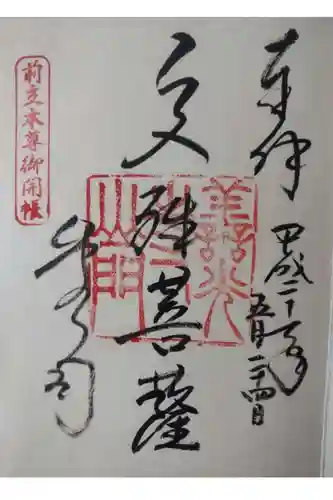 奉拝
平成二十七年
五月二十四日
文殊菩薩
善光寺
山門
善光寺
前立本尊御開帳